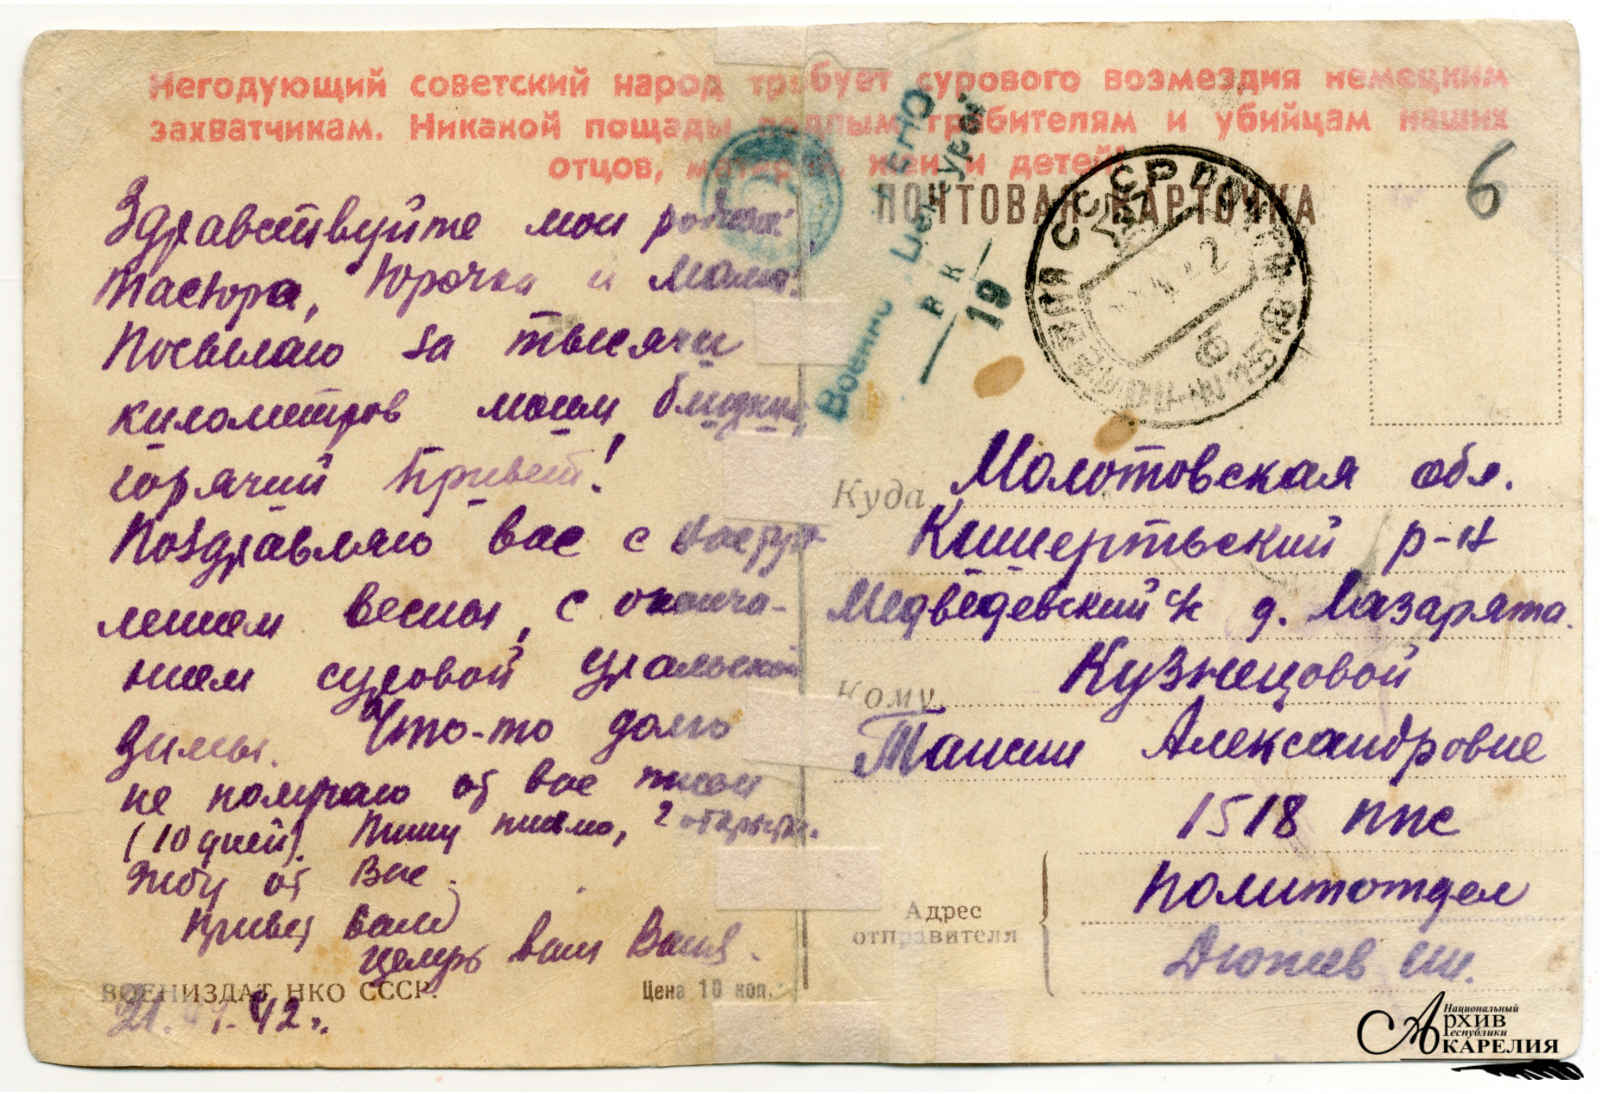 Негодующий советский народ требует сурового возмездия немецким
захватчикам. Никакой пощады подлым грабителям и убийцам наших
отцов, матерей, жен и детей!
ПОЧТОВАЯ КАРТОЧКА
6
Военно
Цензурой
РКК
19
СССР
Здравствуйте мои родные:
Тасюра, Юрочка и Мама.
Посылаю за тысячи
километров моим близким,
горячий привет!
Поздравляю вас с наступ-
лением весны, с оконча-
нием суровой уральской
зимы. Что-то долго
не получаю от вас писем
(10 дней). Пишу письмо, 2 открытк.
Жду от Вас.
Привет вам
целую ваш Ваня.
ВОЕНИЗДАТ НКО СССР.
Цена 10 коп.
42 г.
Куда Молотовская обл.
Кишертьский р-н
Медведевский с/с д. Лазарята.
Кузнецовой
Кому
Таисии Александровне
1518 ппс
Адрес
отправителя
Политотдел
Дюжев
Национальный
АРХИВ
Республики
КАРЕЛИЯ